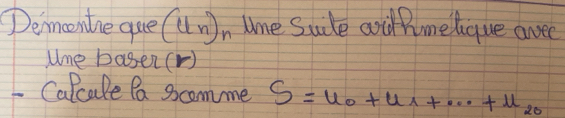 Démontre que (Un)n Une Suite arithmetique avec
Une baser (r)
- Calcule la somme S = u0 + u1 + ... + u20